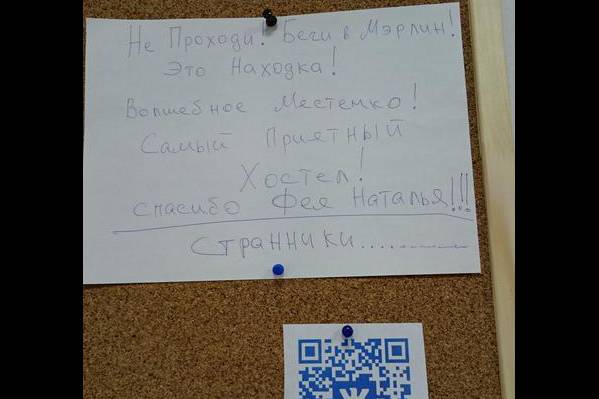 Не Проходи! Беги в Мэрлин!
Это Находка!
Волшебное Местечко!
Самый Приятный
Хостел!
спасибо Фея Наталья!!!
Странники..............